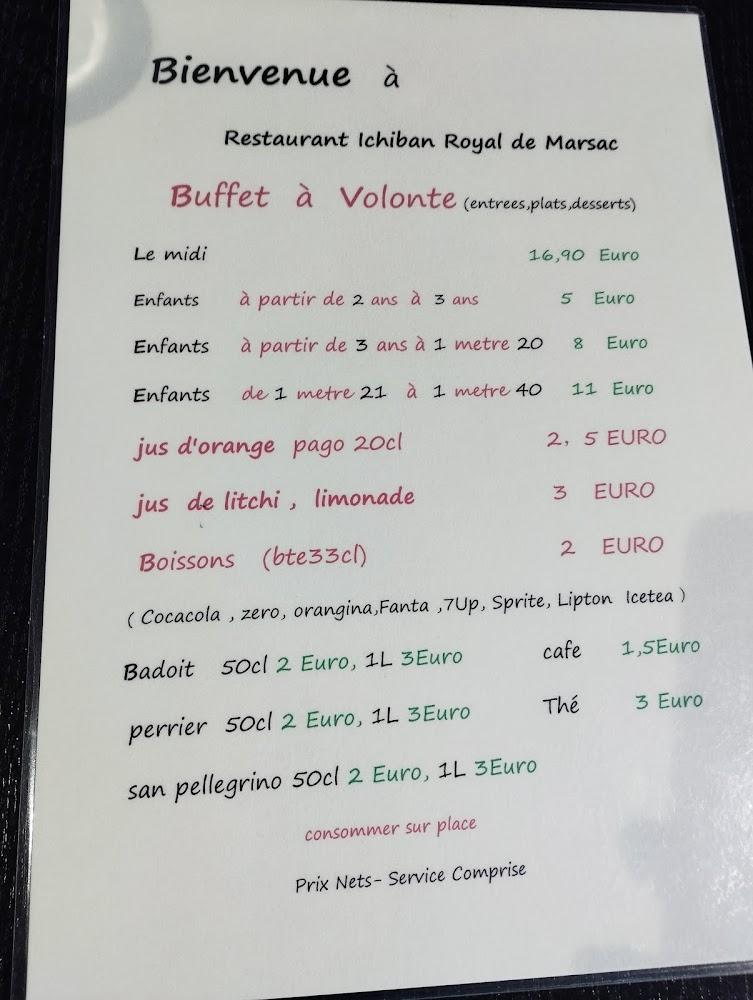 Bienvenue à
Restaurant Ichiban Royal de Marsac
Buffet à Volonte (entrees,plats,desserts)
Le midi 16,90 Euro
Enfants à partir de 2 ans à 3 ans 5 Euro
Enfants à partir de 3 ans à 1 metre 20 8 Euro
Enfants de 1 metre 21 à 1 metre 40 11 Euro
jus d'orange pago 20cl 2, 5 EURO
jus de litchi , limonade 3 EURO
Boissons (bte33cl) 2 EURO
( Cocacola , zero, orangina,Fanta ,7Up, Sprite, Lipton Icetea )
Badoit 50cl 2 Euro, 1L 3Euro cafe 1,5Euro
perrier 50cl 2 Euro, 1L 3Euro Thé 3 Euro
san pellegrino 50cl 2 Euro, 1L 3Euro
consommer sur place
Prix Nets- Service Comprise